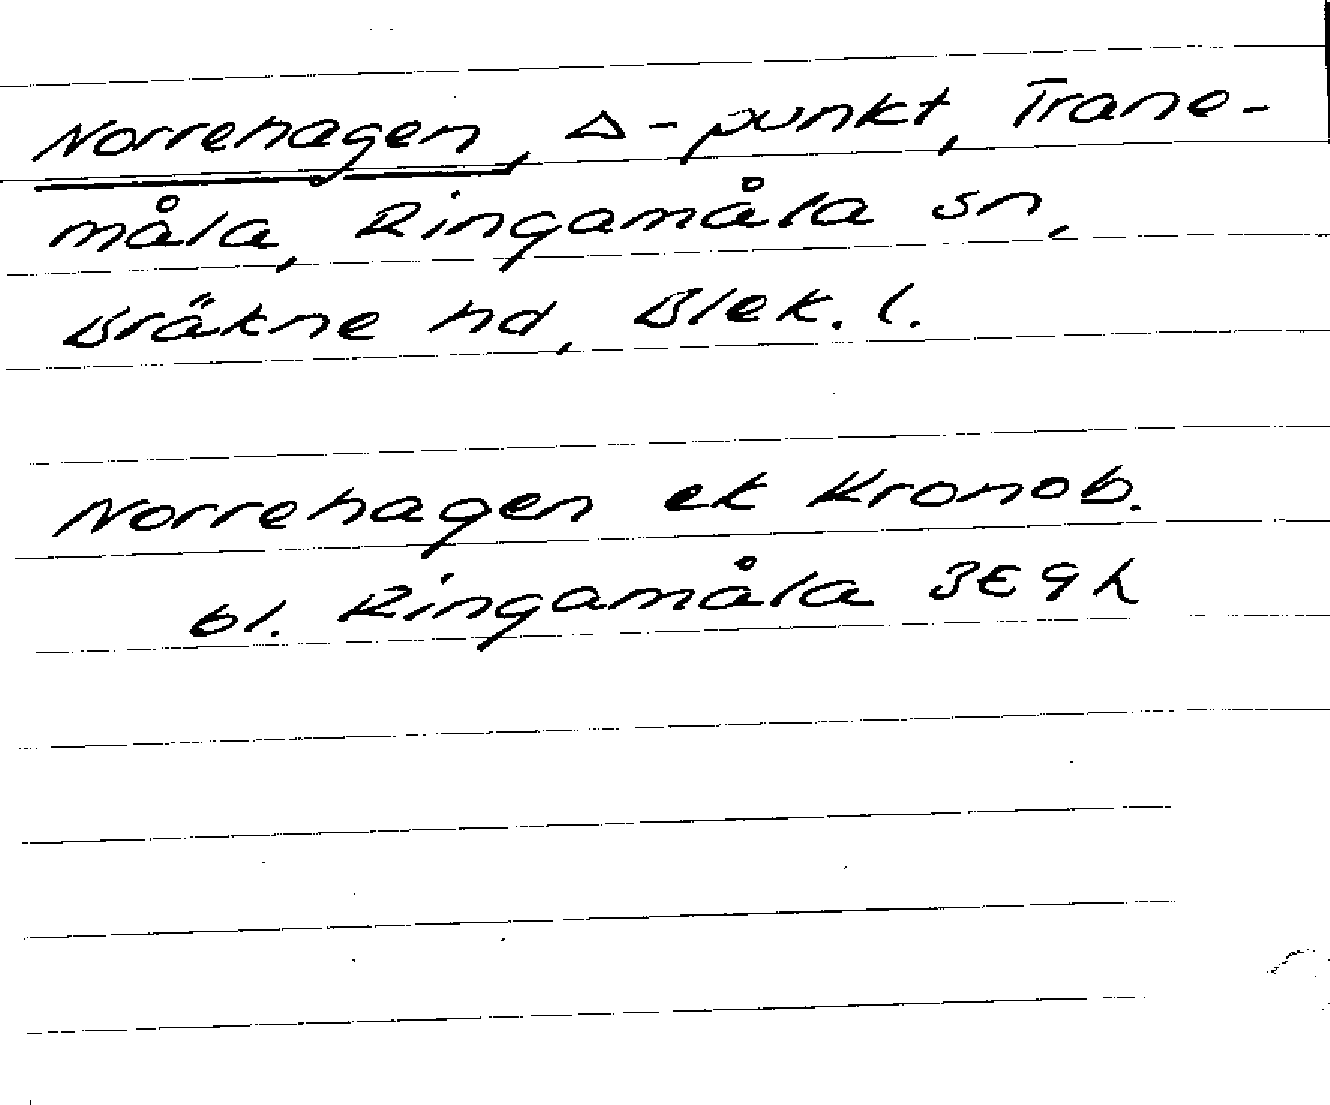 Norrehagen, Δ-punkt, Trane-
måla, Ringamåla sn,
Bräkne hd, Blek. l.
Norrehagen ek Kronob.
bl. Ringamåla 3E9h